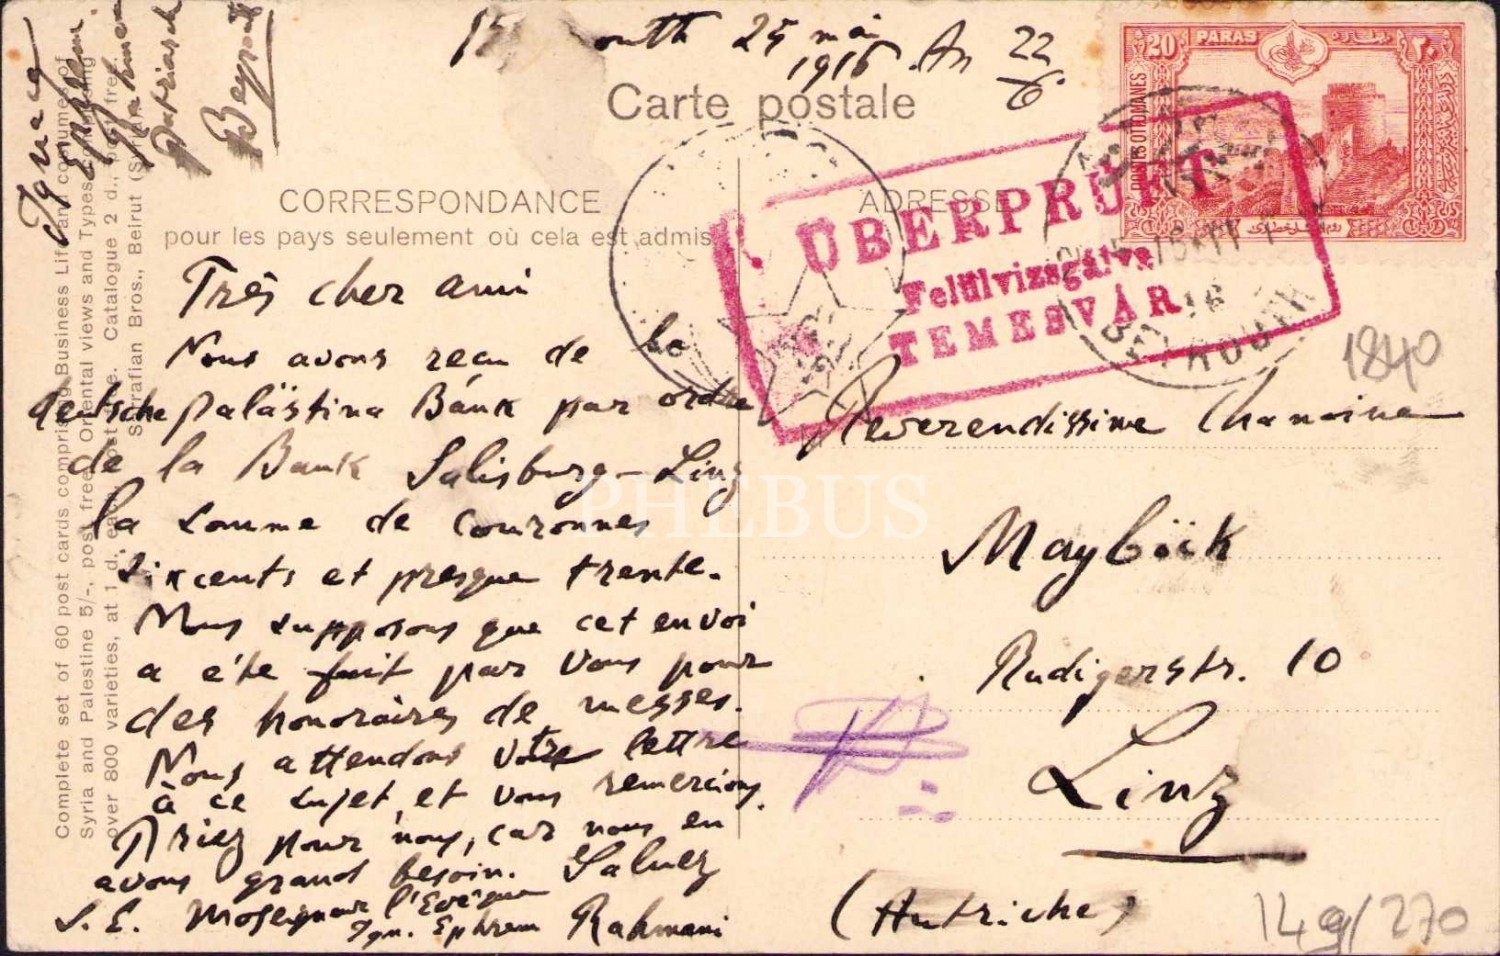 outh 25 mai
1916 An 22/6
Carte postale
CORRESPONDANCE
pour les pays seulement où cela est admis
ADRESSE
Très cher ami
Nous avons reçu de la
deutsche palästina Bank par ordre
de la Bank Salisburg-Linz
la somme de couronnes
sixcents et presque trente.
Nous supposons que cet envoi
a été fait par vous pour
des honoraires de messes.
Nous attendons votre lettre
à ce sujet, et vous remercions.
Priez pour nous, car nous en
avons grand besoin. Saluez
S. E. Monseigneur l'Evèque
Ign. Ephrem Rahmani
Ignace
Ephrem
Rahmani
Patriarch
Beyrouth
Complete set of 60 post cards comprising Business Life and costumes of
Syria and Palestine 5/-, post free. Oriental views and Types
over 800 varieties, at 1 d. each, post free. Catalogue 2 d., post free.
Sarrafian Bros., Beirut (Syria)
20 PARAS ٢٠
POSTES OTTOMANES
BEYROUTH
ÜBERPRÜFT
Felülvizsgálva
TEMESVÁR
Reverendissime Chanoine
Mayböck
Rudigerstr. 10
Linz
(Autriche)
1840
149/270
PHEBUS